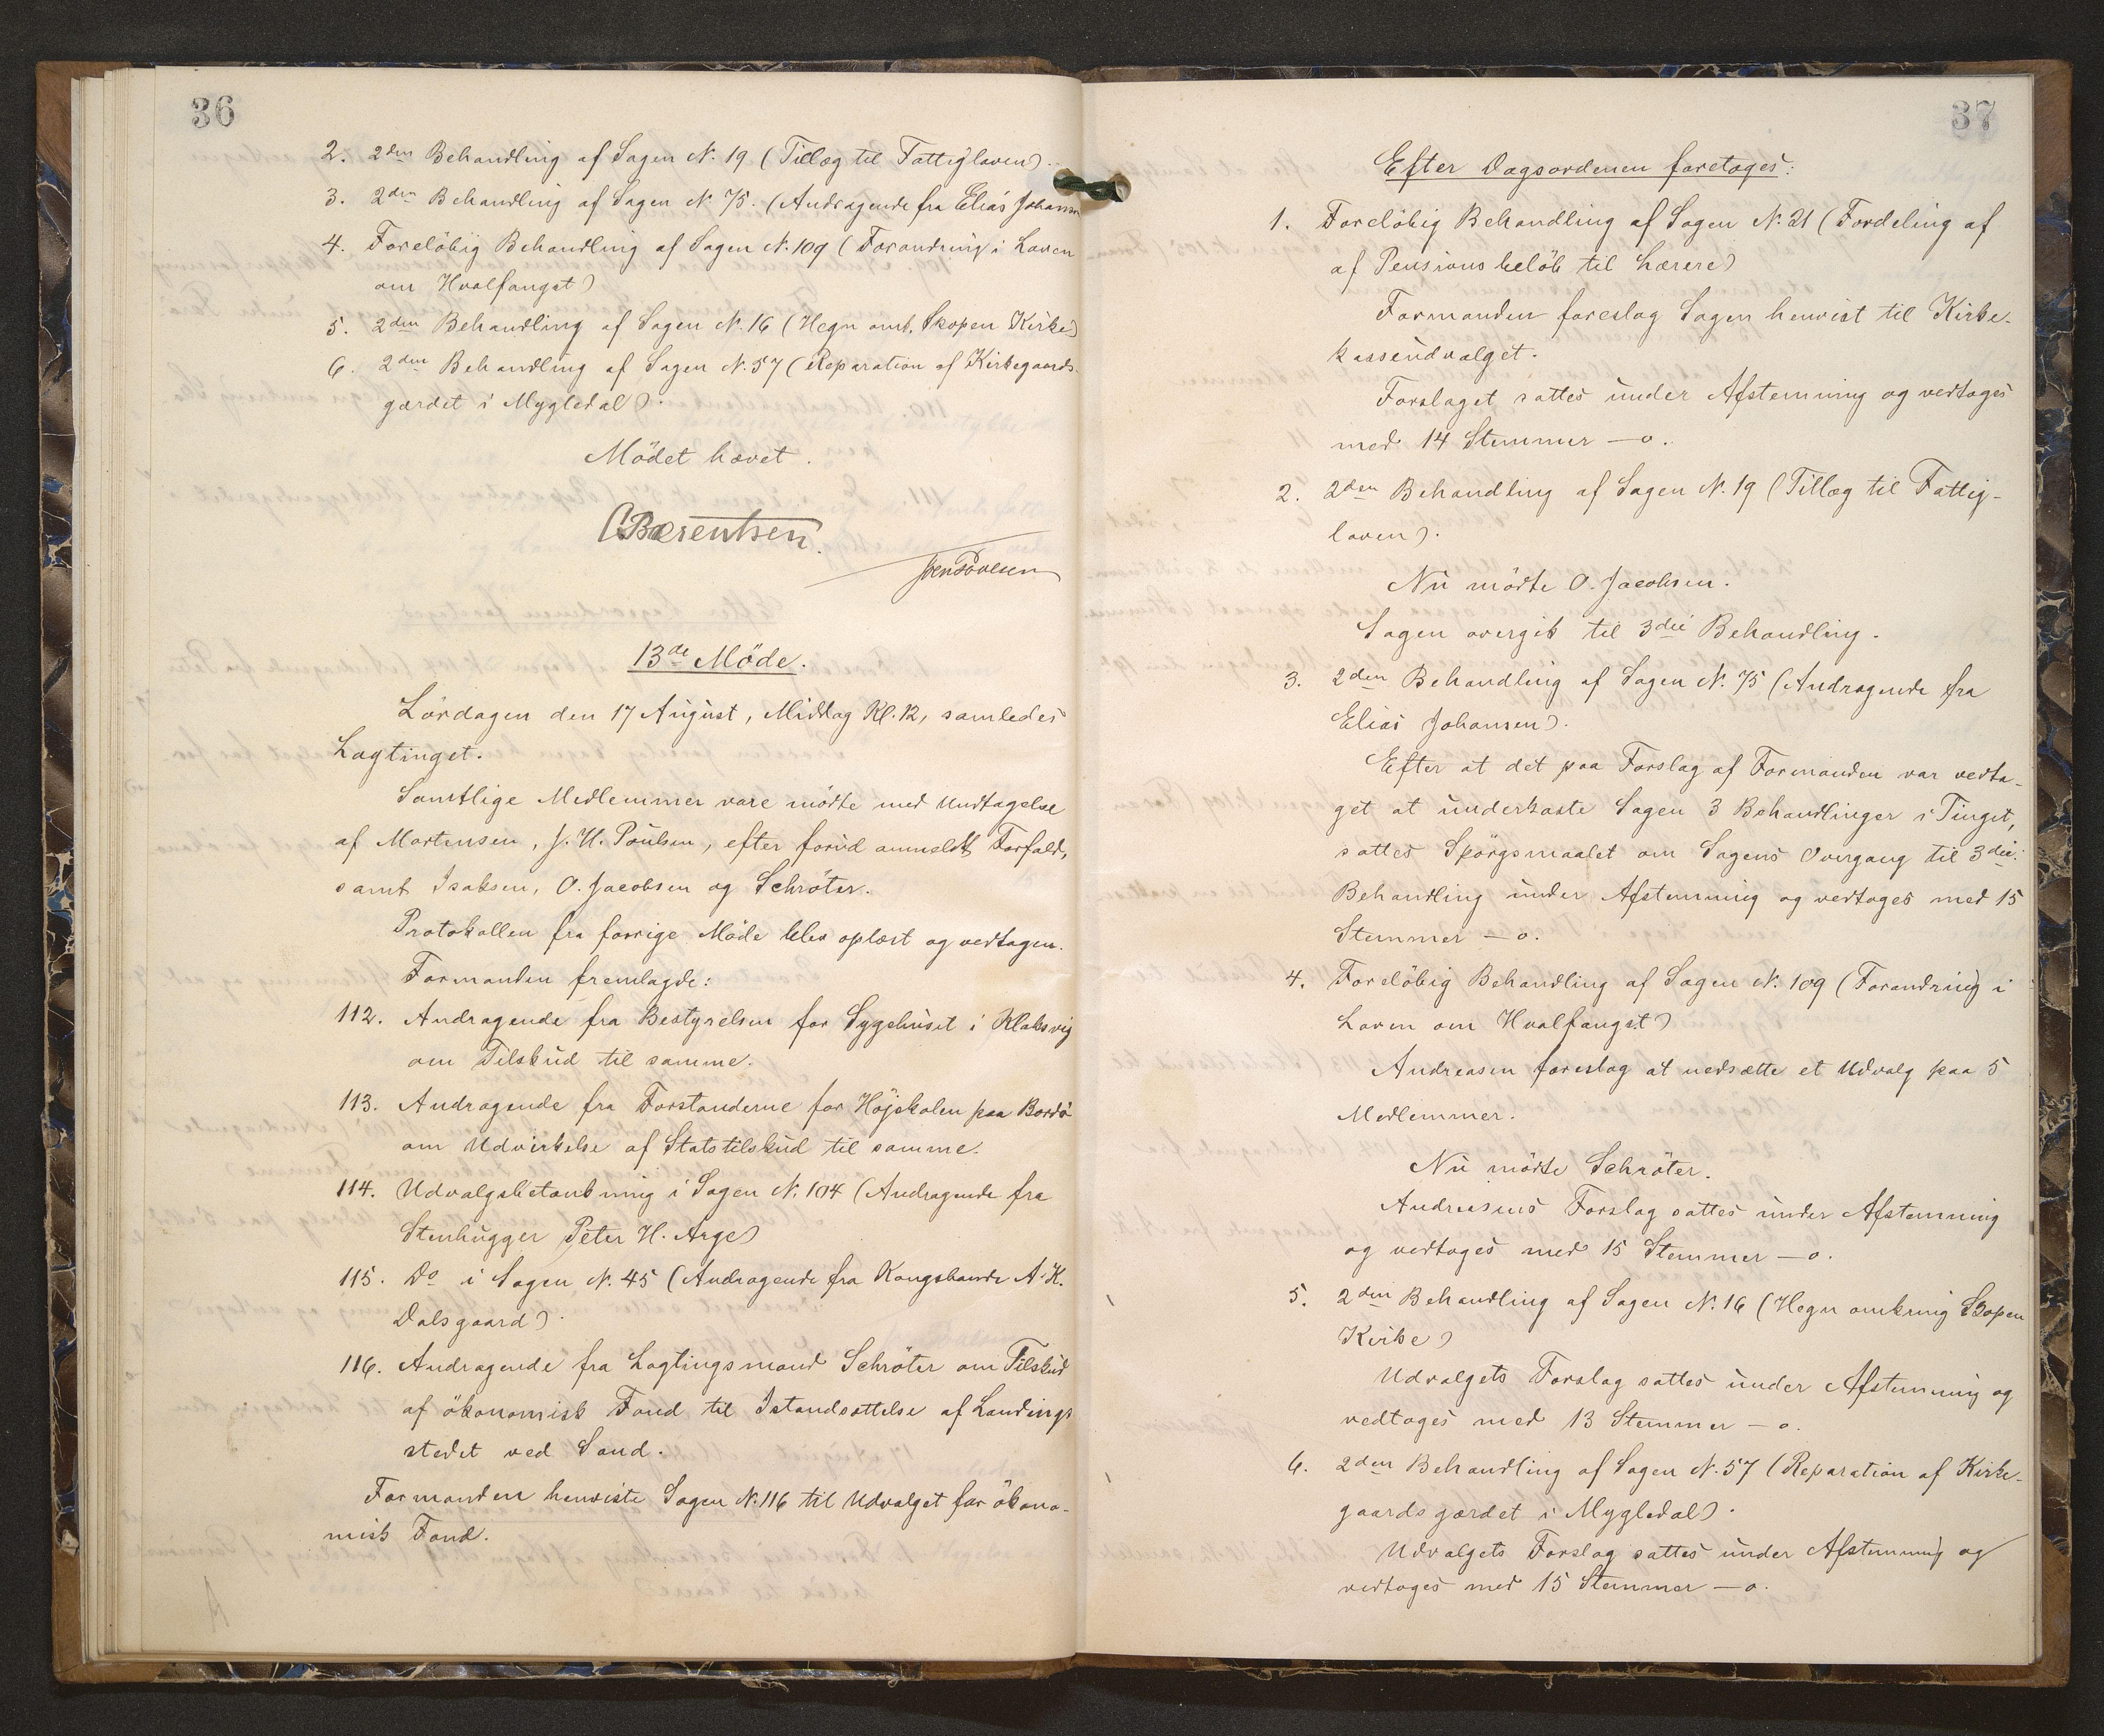 36
2. 2den Behandling af Sagen N. 19 (Tillæg til Fattigloven).
3. 2den Behandling af Sagen N. 75. (Andragende fra Elias Johansen
4. Foreløbig Behandling af Sagen N. 109 (Forandring i Loven
om Hvalfangst)
5. 2den Behandling af Sagen N. 16 (Hegn omk. Skopen Kirke)
6. 2den Behandling af Sagen N. 57 (Reparation af Kirkegaards-
gærdet i Mygledal).
Mödet hævet.
C Bærentsen.
Joen Poulsen
13de Möde.
Lördagen den 17 August, Middag Kl. 12, samledes
Lagtinget.
Samtlige Medlemmer vare mödte med Undtagelse
af Mortensen, J. H. Poulsen, efter forud anmeldt Forfald,
samt Isaksen, O. Jacobsen og Schröter.
Protokollen fra forrige Möde blev oplæst og vedtagen.
Formanden fremlagde:
112. Andragende fra Bestyrelsen for Sygehuset i Klaksvig
om Tilskud til samme.
113. Andragende fra Forstanderne for Höjskolen paa Bordö
om Udvirkelse af Statstilskud til samme.
114. Udvalgsbetænkning i Sagen N. 104 (Andragende fra
Stenhugger Peter H. Arge)
115. Do i Sagen N. 45 (Andragende fra Kongsbonde A. K.
Dalsgaard).
116. Andragende fra Lagtingsmand Schröter om Tilskud
af ökonomisk Fond til Istandsættelse af Landings
stedet ved Sand.
Formanden henviste Sagen N. 116 til Udvalget for ökono-
misk Fond.
37
Efter Dagsordenen foretoges:
1. Foreløbig Behandling af Sagen N. 21 (Fordeling af
af Pensionsbelöb til Lærere)
Formanden foreslog Sagen henvist til Kirke-
kasseudvalget.
Forslaget sattes under Afstemning og vedtoges
med 14 Stemmer — o.
2. 2den Behandling af Sagen N. 19 (Tillæg til Fattig-
loven).
Nu mödte O. Jacobsen.
Sagen overgik til 3die Behandling.
3. 2den Behandling af Sagen N. 75 (Andragende fra
Elias Johansen).
Efter at det paa Forslag af Formanden var vedta-
get at underkaste Sagen 3 Behandlinger i Tinget,
sattes Spörgsmaalet om Sagens Overgang til 3die
Behandling under Afstemning og vedtoges med 15
Stemmer — o.
4. Foreløbig Behandling af Sagen N. 109 (Forandring i
Loven om Hvalfangst)
Andreasen foreslog at nedsætte et Udvalg paa 5
Medlemmer.
Nu mödte Schröter.
Andreasens Forslag sattes under Afstemning
og vedtoges med 15 Stemmer — o.
5. 2den Behandling af Sagen N. 16 (Hegn omkring Skopen
Kirke)
Udvalgets Forslag sattes under Afstemning og
vedtoges med 13 Stemmer — o.
6. 2den Behandling af Sagen N. 57 (Reparation af Kirke-
gaardsgærdet i Mygledal).
Udvalgets Forslag sattes under Afstemning og
vedtoges med 15 Stemmer — o.